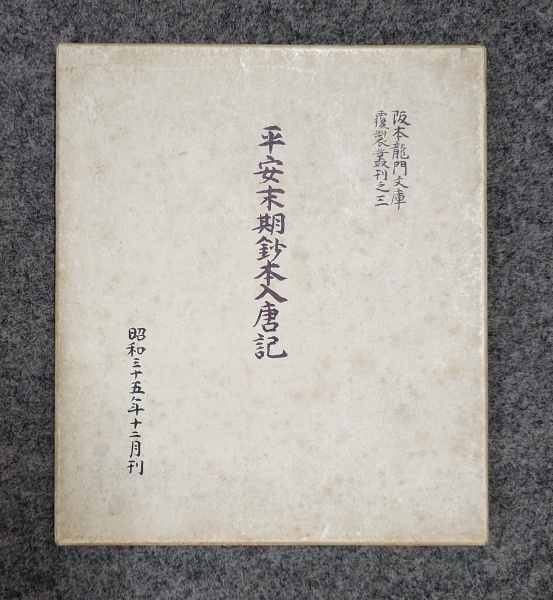 阪本龍門文庫
覆製叢刊之三
平安末期鈔本入唐記
昭和三十五年十二月刊